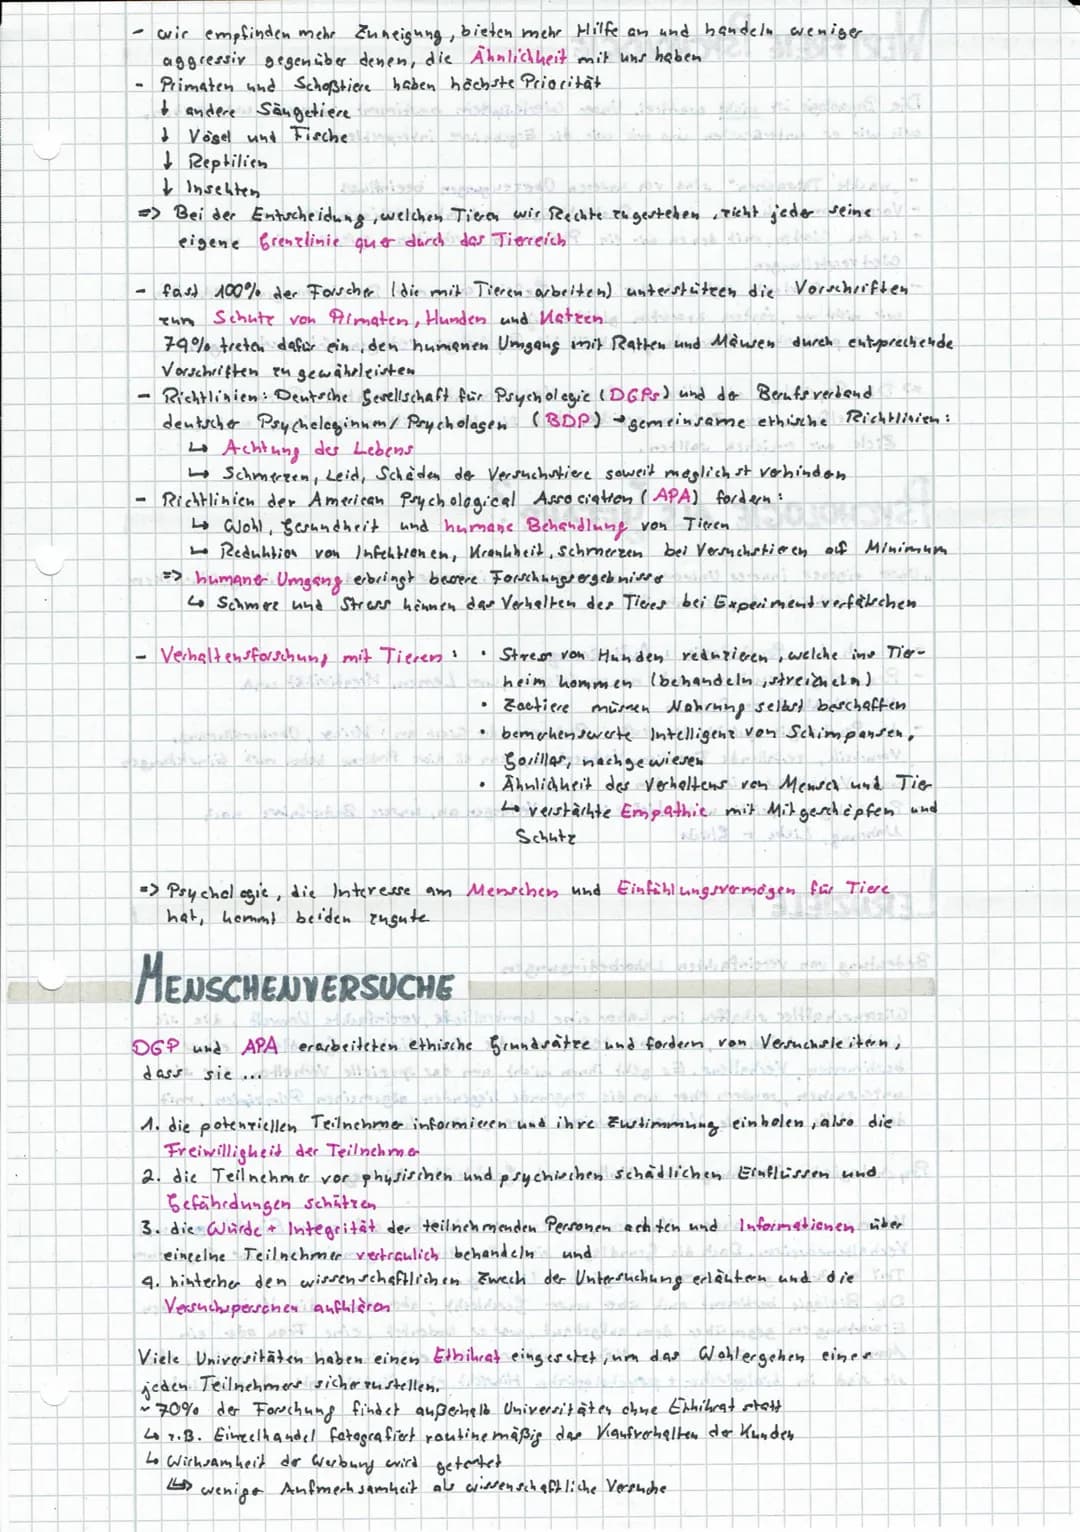 - wir empfinden mehr Zuneigung, bieten mehr Hilfe an und handeln weniger
aggressiv gegenüber denen, die Ähnlichkeit mit uns haben
- Primaten und Schoßtiere haben höchste Priorität
↓ andere Säugetiere
↓ Vögel und Fische
↓ Reptilien
↓ Insekten
=> Bei der Entscheidung, welchen Tieren wir Rechte zugestehen, zieht jeder seine
eigene Grenzlinie quer durch das Tierreich
- fast 100% der Forscher (die mit Tieren arbeiten) unterstützen die Vorschriften
zum Schutz von Primaten, Hunden und Katzen
79% treten dafür ein, den humanen Umgang mit Ratten und Mäusen durch entsprechende
Vorschriften zu gewährleisten
- Richtlinien: Deutsche Gesellschaft für Psychologie (DGPs) und der Berufsverband
deutscher Psychologinnen/ Psychologen (BDP) → gemeinsame ethische Richtlinien:
↳ Achtung des Lebens
↳ Schmerzen, Leid, Schäden der Versuchstiere soweit möglichst verhindern
- Richtlinien der American Psychological Association (APA) fordern:
↳ Wohl, Gesundheit und humane Behandlung von Tieren
↳ Reduktion von Infektionen, Krankheit, Schmerzen bei Versuchstieren auf Minimum
=> humaner Umgang erbringt bessere Forschungsergebnisse
↳ Schmerz und Stress können das Verhalten des Tieres bei Experiment verfälschen
- Verhaltensforschung mit Tieren: • Stress von Hunden reduzieren, welche ins Tier-
heim kommen (behandeln, streicheln)
• Zootiere müssen Nahrung selbst beschaffen
• bemerkenswerte Intelligenz von Schimpansen,
Gorillas, nachgewiesen
• Ähnlichkeit des Verhaltens von Mensch und Tier
↳ verstärkte Empathie mit Mitgeschöpfen und
Schutz
=> Psychologie, die Interesse am Menschen und Einfühlungsvermögen für Tiere
hat, kommt beiden zugute
MENSCHENVERSUCHE
DGP und APA erarbeiteten ethische Grundsätze und fordern von Versuchsleitern,
dass sie ...
1. die potenziellen Teilnehmer informieren und ihre Zustimmung einholen, also die
Freiwilligkeit der Teilnehmer
2. die Teilnehmer vor physischen und psychischen schädlichen Einflüssen und
Gefährdungen schützen
3. die Würde + Integrität der teilnehmenden Personen achten und Informationen über
einzelne Teilnehmer vertraulich behandeln und
4. hinterher den wissenschaftlichen Zweck der Untersuchung erläutern und die
Versuchspersonen aufklären
Viele Universitäten haben einen Ethikrat eingesetzt, um das Wohlergehen eines
jeden Teilnehmers sicherzustellen.
~ 70% der Forschung findet außerhalb Universitäten ohne Ethikrat statt
↳ z.B. Einzelhandel fotografiert routinemäßig das Kaufverhalten der Kunden
↳ Wirksamkeit der Werbung wird getestet
↳> weniger Aufmerksamkeit als wissenschaftliche Versuche